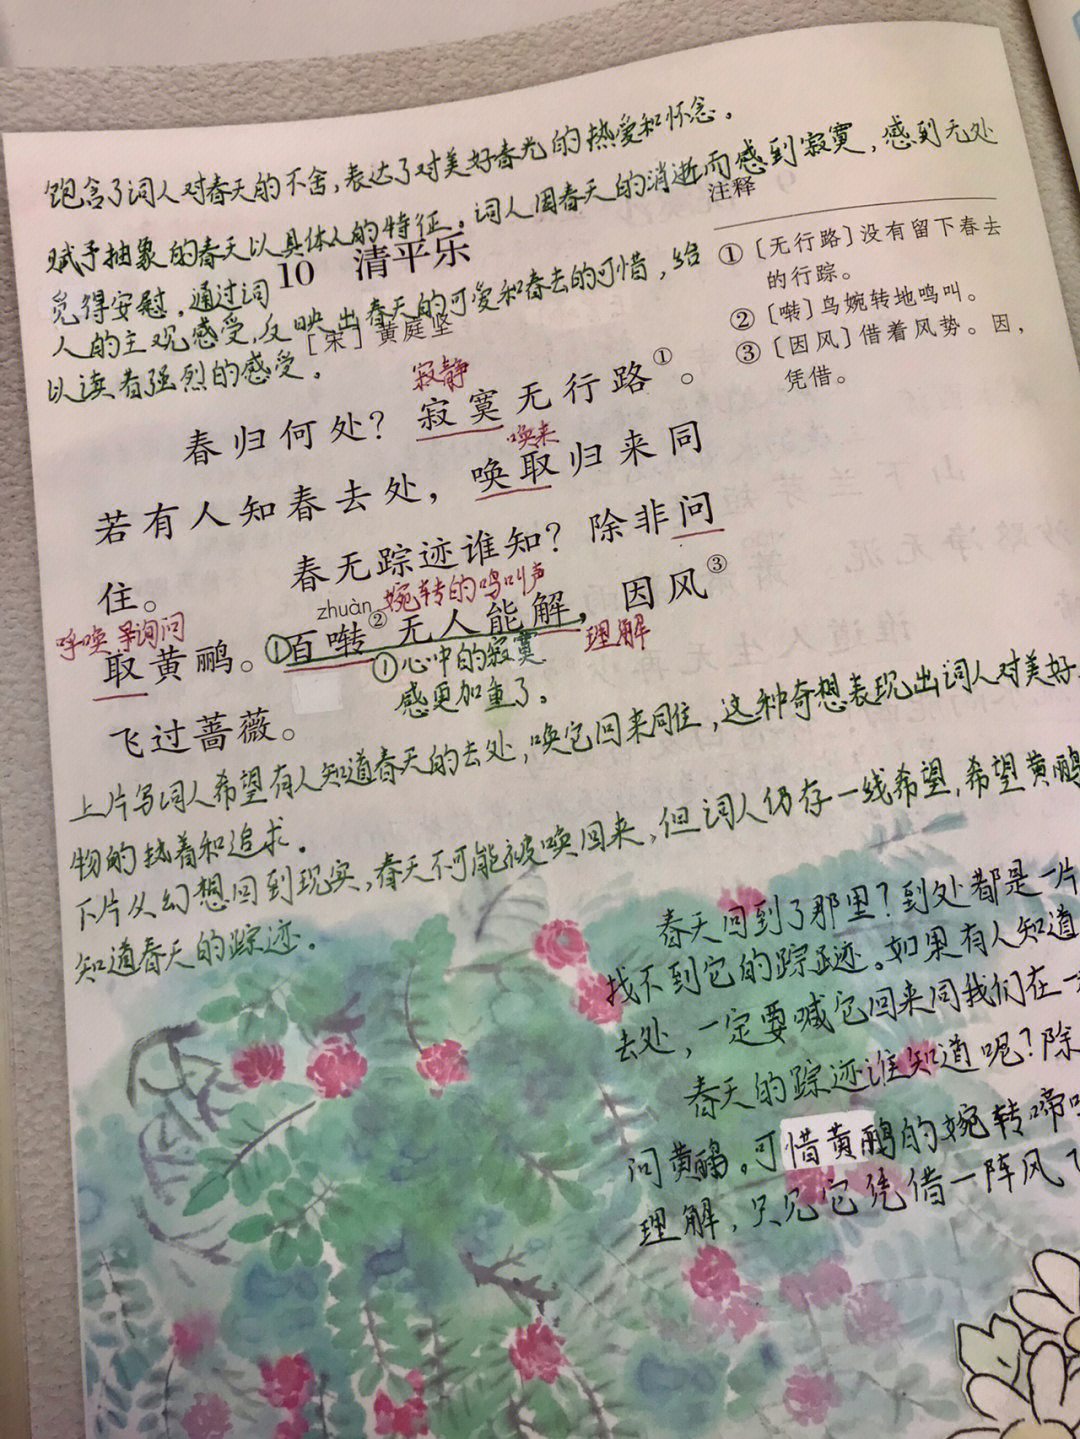 饱含了词人对春天的不舍，表达了对美好春光的热爱和怀念。
赋予抽象的春天以具体人的特征，词人因春天的消逝而感到寂寞，感到无处
觅得安慰，通过词
人的主观感受，反映出春天的可爱和春去的可惜，给
以读者强烈的感受。
10 清平乐
［宋］黄庭坚
注释
①〔无行路〕没有留下春去
的行踪。
②〔啭〕鸟婉转地鸣叫。
③〔因风〕借着风势。因，
凭借。
寂静
春归何处？寂寞无行路①。
唤来
若有人知春去处，唤取归来同
住。
春无踪迹谁知？除非问
zhuàn
婉转的鸣叫声
呼唤 寻询问
取黄鹂。①百啭②无人能解，因风③
理解
①心中的寂寞
感更加重了。
飞过蔷薇。
上片写词人希望有人知道春天的去处，唤它回来同住，这种奇想表现出词人对美好
物的执着和追求。
下片从幻想回到现实，春天不可能被唤回来，但词人仍存一线希望，希望黄鹂
知道春天的踪迹。
春天回到了那里？到处都是一片
找不到它的踪迹。如果有人知道
去处，一定要喊它回来同我们在一
春天的踪迹谁知道呢？除
问黄鹂。可惜黄鹂的婉转啼
理解，只见它凭借一阵风